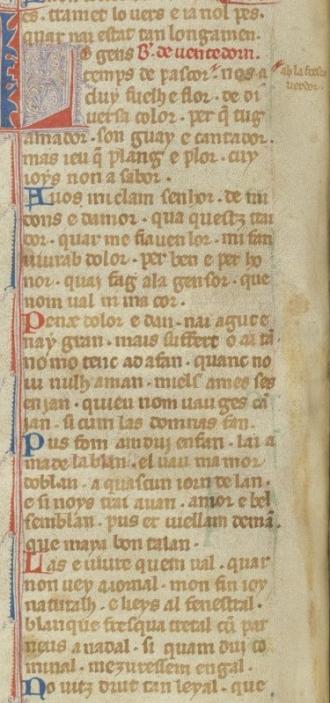 es. tramet lo vers e ia nol pes.
quar nai estat tan longamen.
gens B. de uentedorn.
temps de pascor. nos a
ab la fresca
verdor.
cuy fuelh e flor. de di
uersa color. per q̃ tug
amador. son guay e cantador.
mas ieu q̃ plang e plor. cuy
ioys non a sabor.
A uos mi clam senhor. de mi
dons e damor. qua questz trai
dor. quar me fiauen lor. mi fan
uiurab dolor. per ben e per ho
nor. quai fag ala gensor. que
nom ual ni ma cor.
Pene dolor e dan. nai agut e
nay gran. mais suffert o ai tã.
no mo tenc ad afan. quanc no
ui nulh aman. miels ames ses
enian. quieu nom uau ges cã
ian. si cum las domnas fan.
Pus fom amdui enfan. lai a
made la blan. el uau ma mor
doblan. a quascun iorn de lan.
e si noys trai auan. amor e bel
semblan. pus er uiellam demã.
que maya bon talan.
Las e uiure quem ual. quar
non uey a iornal. mon fin ioy
naturalh. e lieys al fenestral.
blanque fresqua cum par
neus a nadal. si quam dui co
minal. mezuressem engal.
No uitz drut tan leyal. que